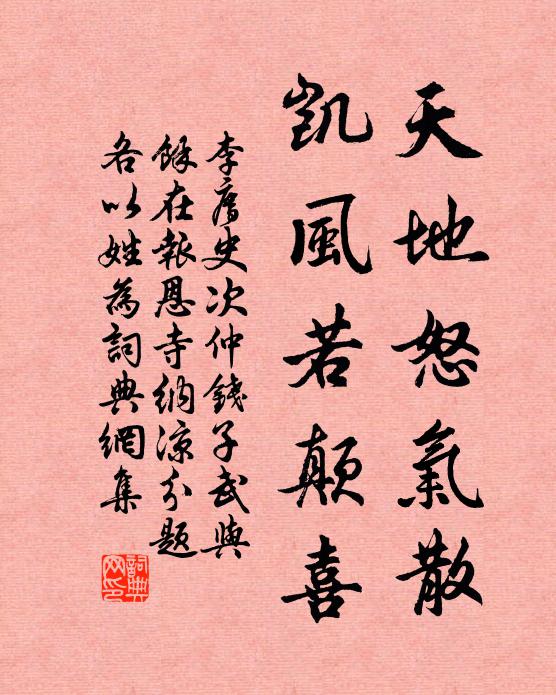 天地怒氣散
凱風若顛喜
李奮史次仲錢子武與
餘在報恩寺納涼分題
各以姓為詞典網集
詞典网印